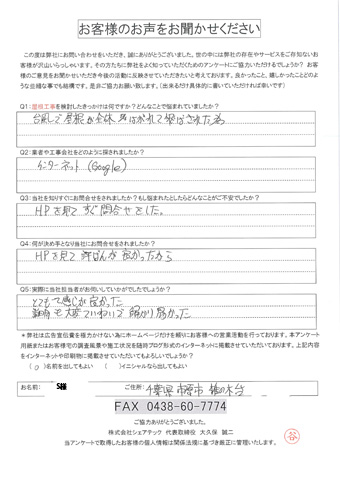 お客様のお声をお聞かせください
この度は弊社にお問い合わせをいただき、誠にありがとうございました。世の中には弊社の存在やサービスをご存知ないお
客様が沢山いらっしゃいます。その方たちに弊社をよく知っていただくためのアンケートにご協力いただけるでしょうか? お
客様のご意見をお聞かせいただき今後の活動に反映させていただきたいと考えております。良かったこと、嬉しかったことどのよ
うな些細な事でも結構です。是非ご協力お願い致します。(出来るだけ具体的に書いていただければ幸いです)
Q1:屋根工事を検討したきっかけは何ですか?どんなことで悩まれていましたか?
台風で屋根が全体 はがれて飛ばされた為
Q2:業者や工事会社をどのように探されましたか?
インターネット(Google)
Q3:当社を知りすぐにお問合せをされましたか?もし悩まれたとしたらどんなことがご不安でしたか?
HPを見てすぐ問合せをした。
Q4:何が決め手となり当社にお問合せをされましたか?
HPを見て評ばんが良かったから
Q5:実際に当社担当者がお伺いしていかがでしたでしょうか?
とても感じが良かった
説明も大変ていねいで解かり易かった
＊弊社は広告宣伝費を極力かけない為にホームページだけを頼りにお客様への営業活動を行っております。本アンケート
用紙またはお客様宅の調査風景や施工状況を随時ブログ形式のインターネットに掲載させていただいております。上記内容
をインターネットや印刷物に掲載させていただいてもよろしいでしょうか?
(○)名前を出してもよい ( )イニシャルなら出してもよい
お名前: S様 ご住所: 千葉県市原市
FAX 0438-60-7774
ご協力ありがとうございました。
株式会社シェアテック 代表取締役 大久保 誠二
当アンケートで取得したお客様の個人情報は関係法規に基づき厳正に管理いたします。